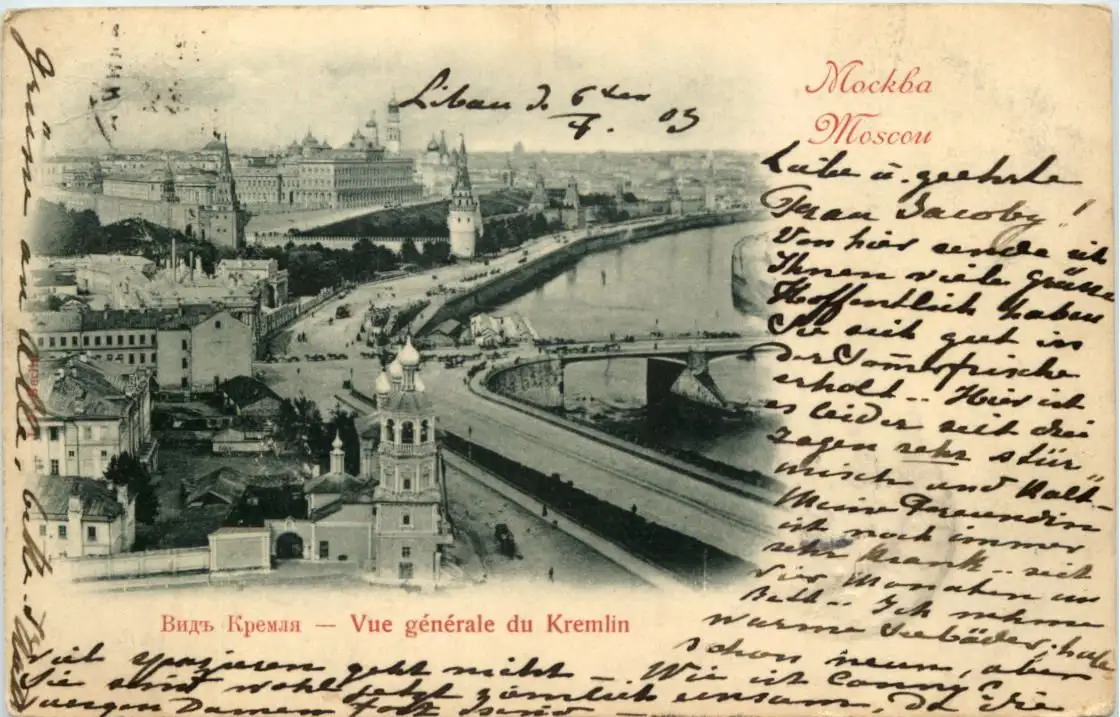 Liban d. 6ten
7. 05
Москва
Moscou
Liebe u. geehrte
Frau Jacoby!
Von hier sende ich
Ihnen viele Grüsse
Hoffentlich haben
Sie sich gut in
der Somerfrische
erholt.. Hier ist
es leider seit drei
Tagen sehr stür"
misch und kalt-
Meine Freundin
ist noch immer
sehr krank.. seit
vier Monaten im
Bett.. Ich nehme
warme Seebäder, habe
schon neun, aber
viel spazieren geht nicht - Wie ist Conny?
Sie sind wohl jetzt zimlich einsam, da die
jungen Damen fort sind -
Grüsse an alle,
Видъ Кремля — Vue générale du Kremlin